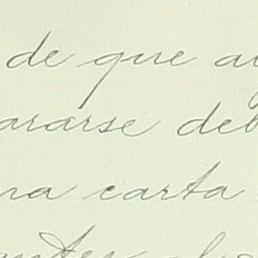 de que a
ararse deb
na carta